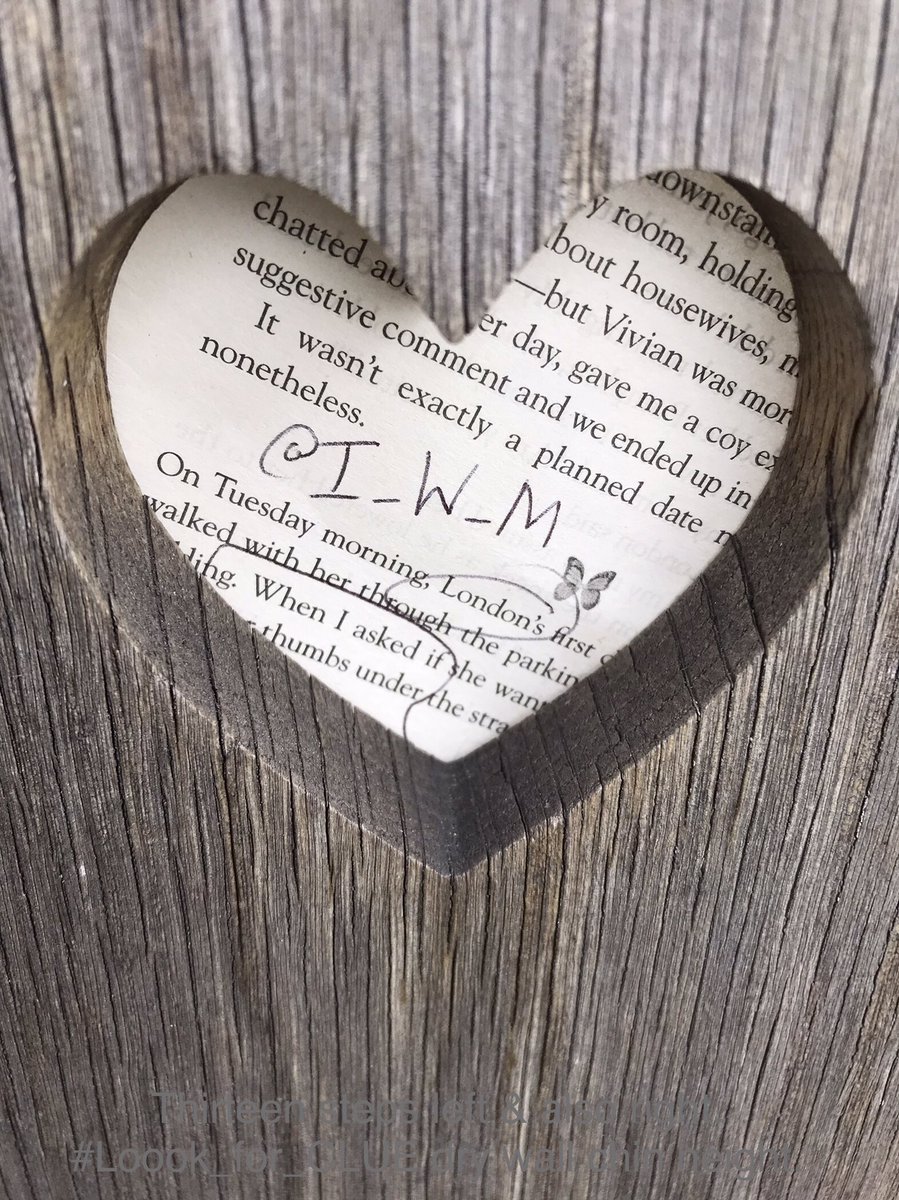 downstair
chatted ab y room, holding
suggestive comment bout housewives,
It wasn't exactly —but Vivian was mor
nonetheless. er day, gave me a coy
and we ended up in
a planned date
@I_W_M
On Tuesday morning, London's first
walked with her through the parkin
ding. When I asked if she want
thumbs under the stra
Thirteen steps left & also right
#Loook_for_GLUE dry wall chin height